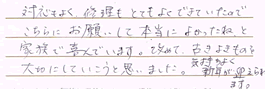 対応もよく、修理もとてもよくできていたので
こちらにお願いして本当によかったねと
家族で喜んでいます。改めて、古きよきものを
大切にしていこうと思いました。
気持ちよく
新年が迎えられ
ます。